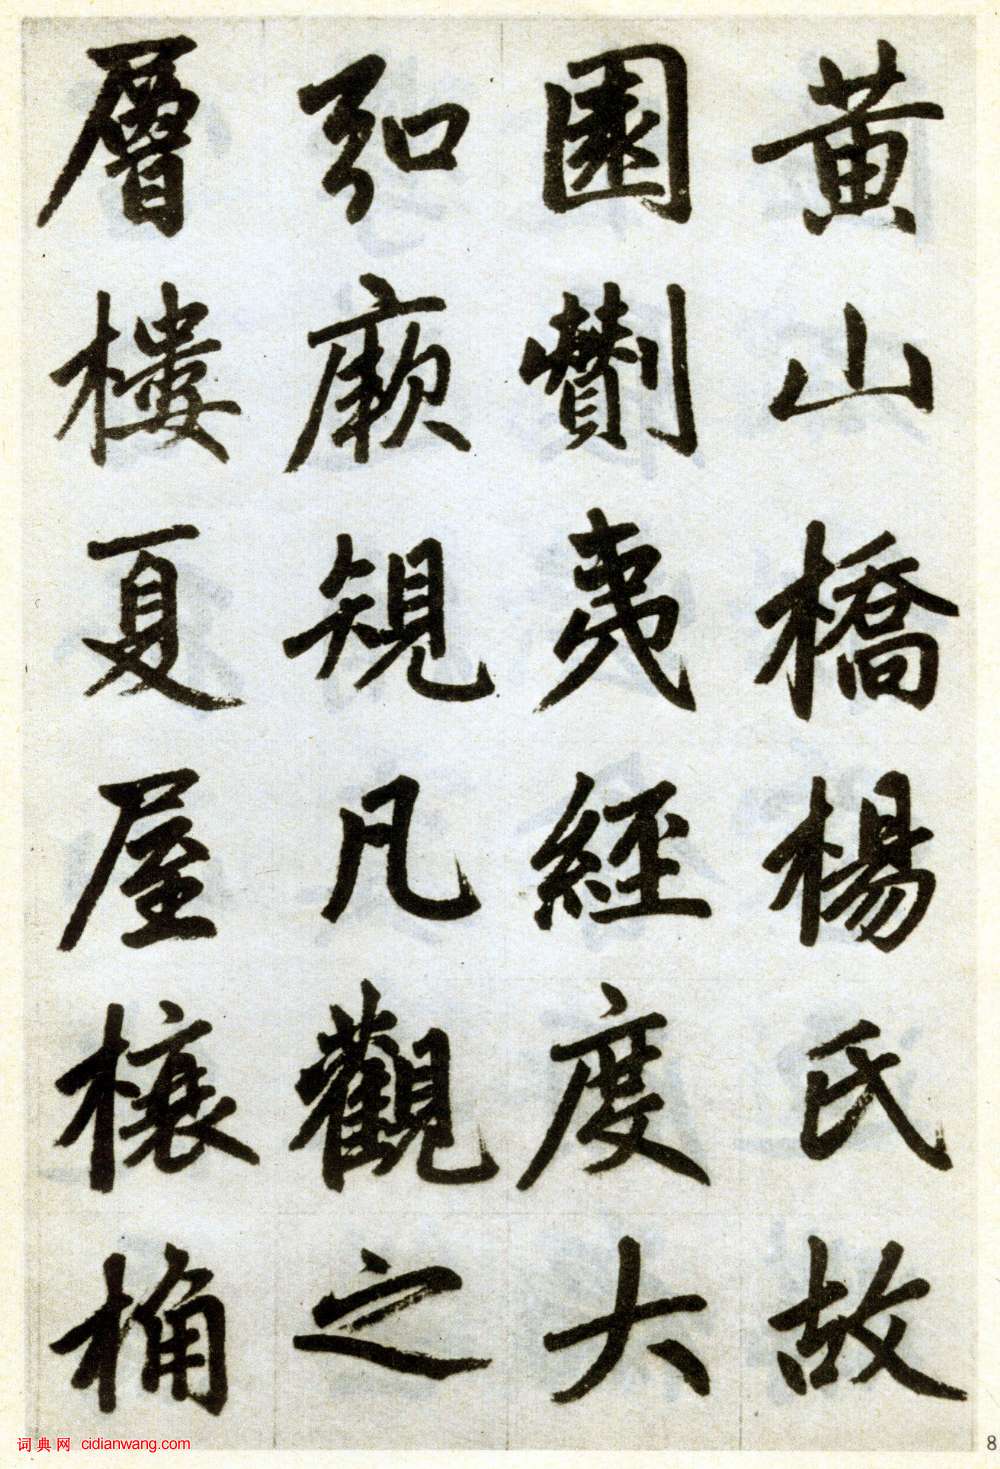 黃山橋楊氏故
園劗夷經度大
弘厥規凡觀之
層樓夏屋榱桷
词典网 cidianwang.com
8